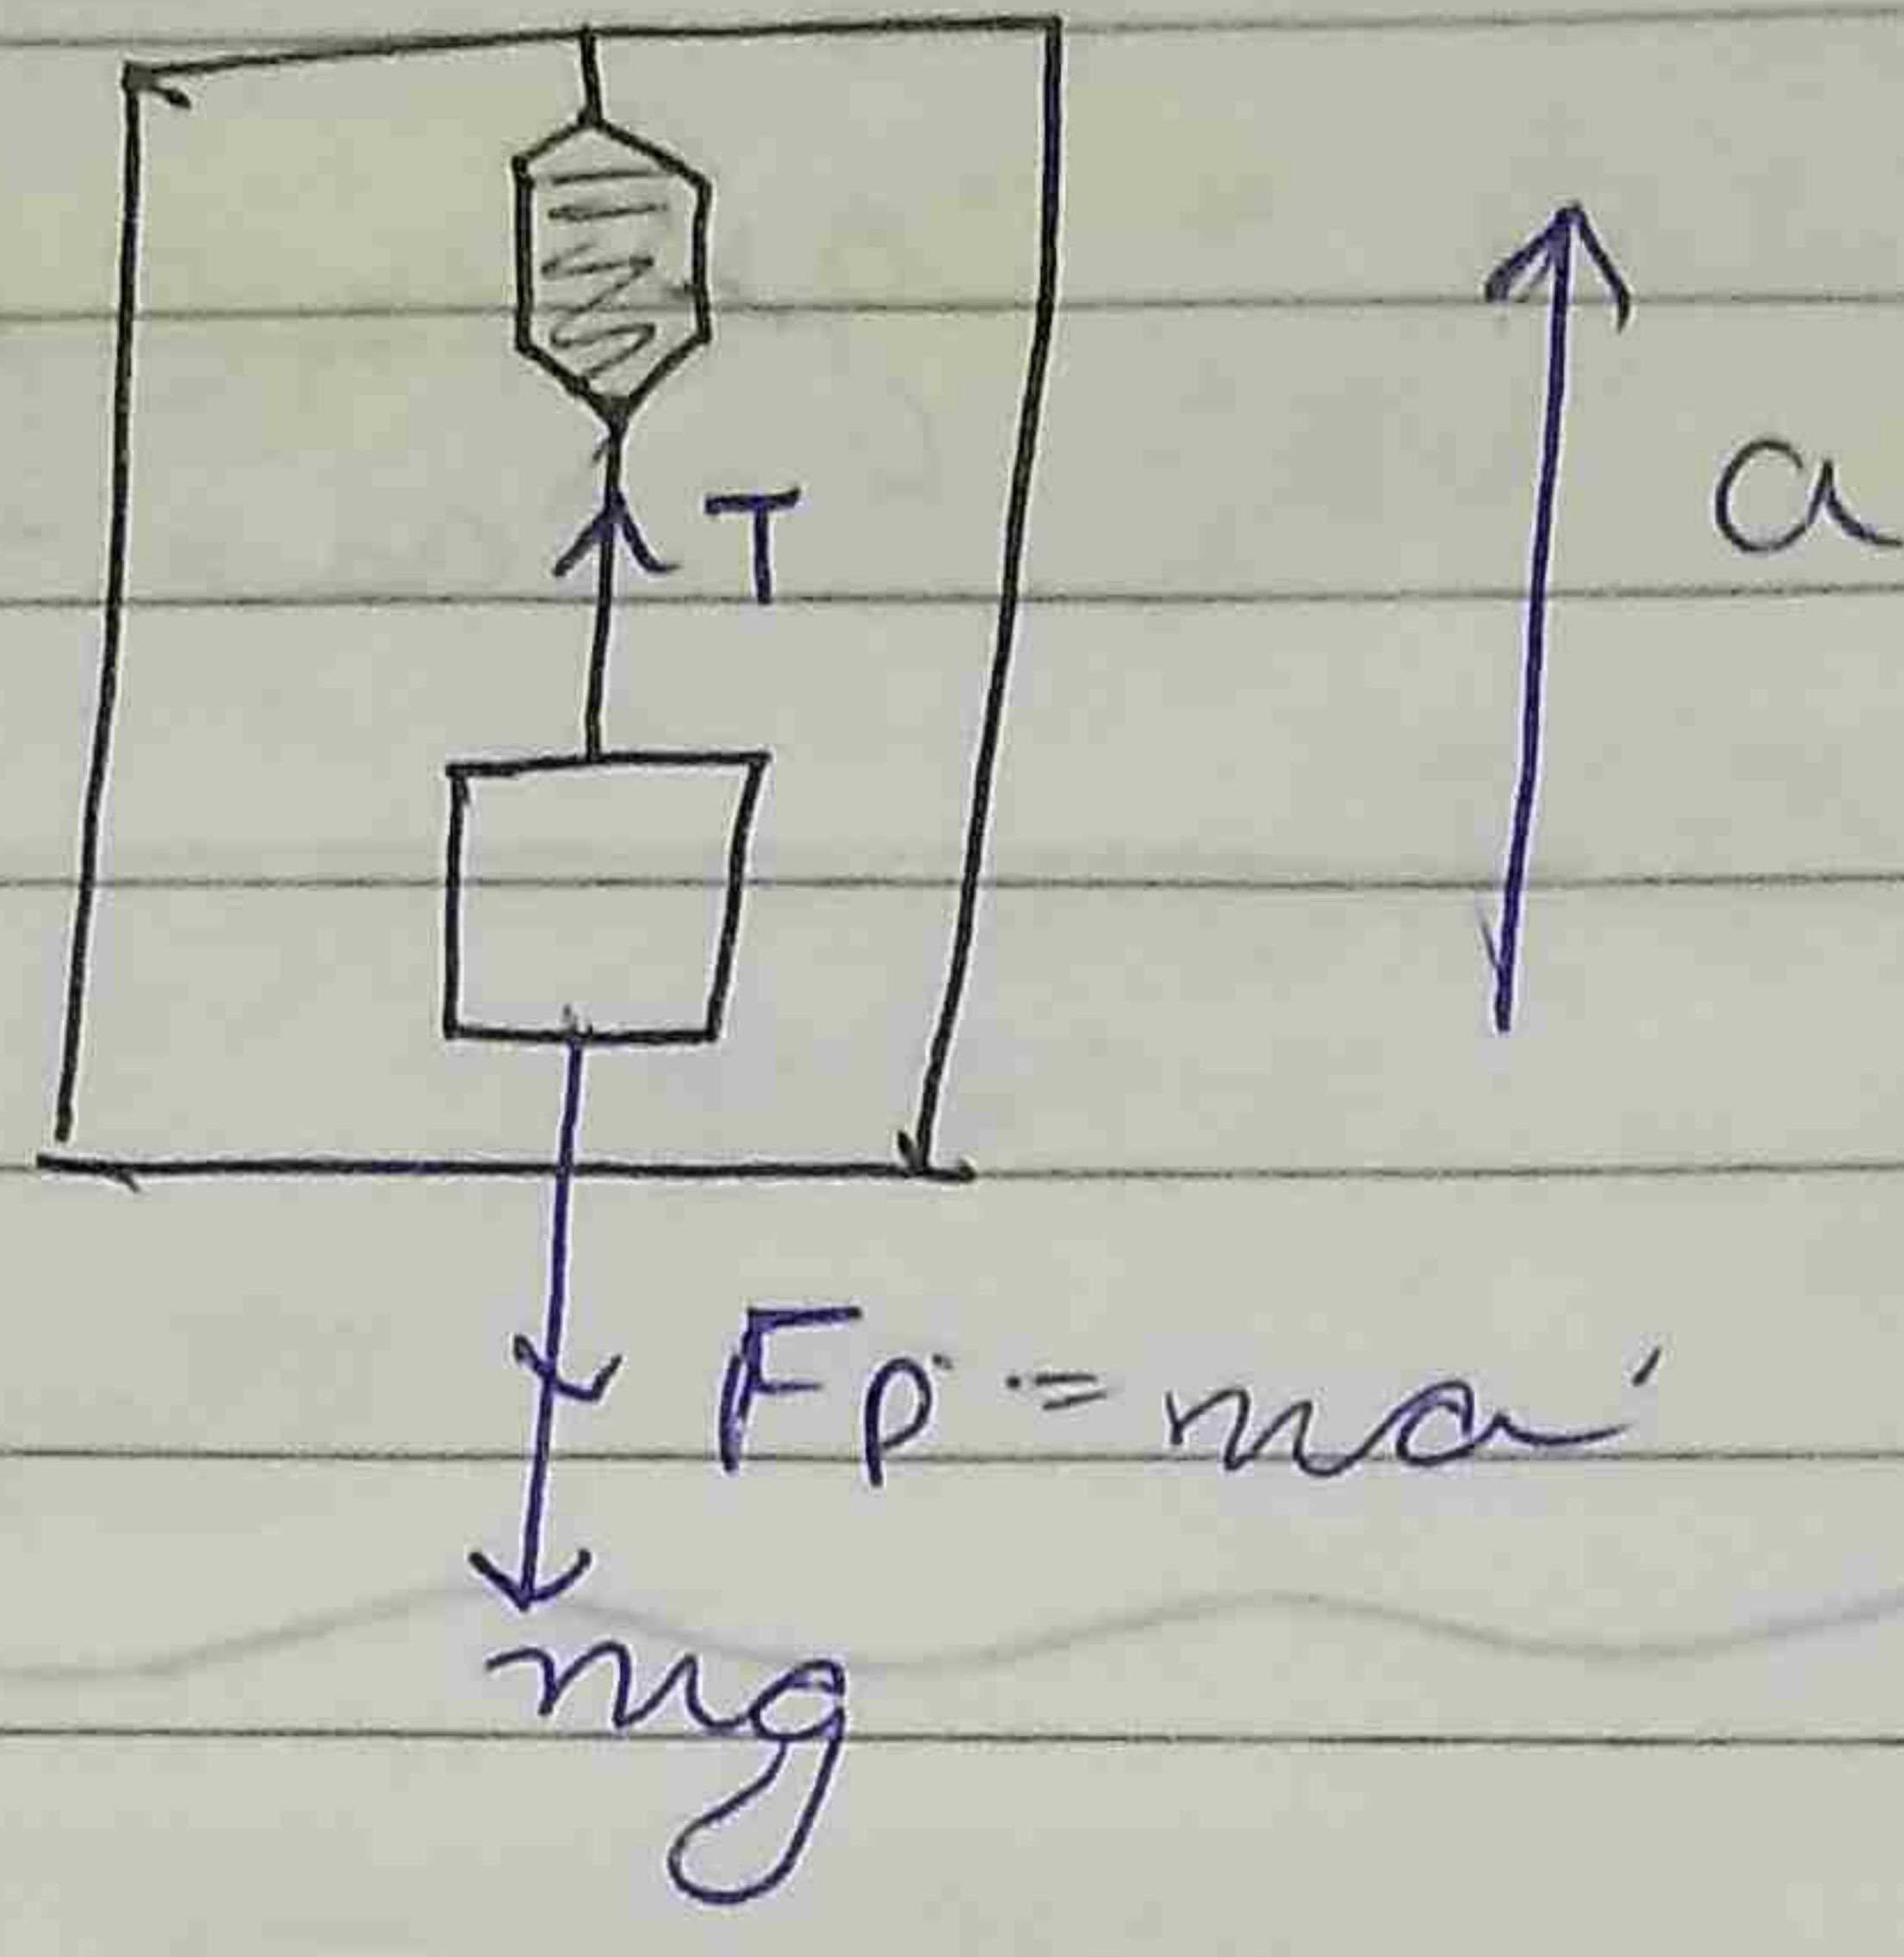 T
a
Fp = ma
mg